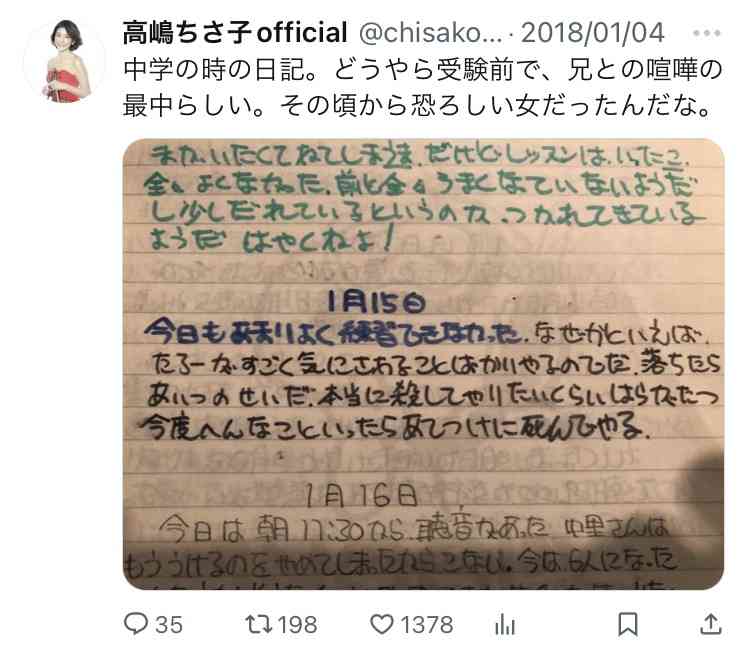 高嶋ちさ子official @chisako... · 2018/01/04 ...
中学の時の日記。どうやら受験前で、兄との喧嘩の
最中らしい。その頃から恐ろしい女だったんだな。
またいたくてねてしまうま.だけどレッスンは.いったこ.
全くよくなかった.前と全くうまくなっていないようだ
し少しだれているというのか.つかれてきている
ようだ はやくねよ!
1月15日
今日もあまりよく練習できなかった.なぜかといえば.
たろーがすごく気にさわることばかりやるのでだ.落ちたら
あいつのせいだ.本当に殺してやりたいくらいはらがたつ
今度へんなこといったらあてつけに死んでやる.
1月16日
今日は朝11:30から.聴音があった 中里さんは
もううけるのをやめてしまったからこない.今は.6人になった
35 198 1378